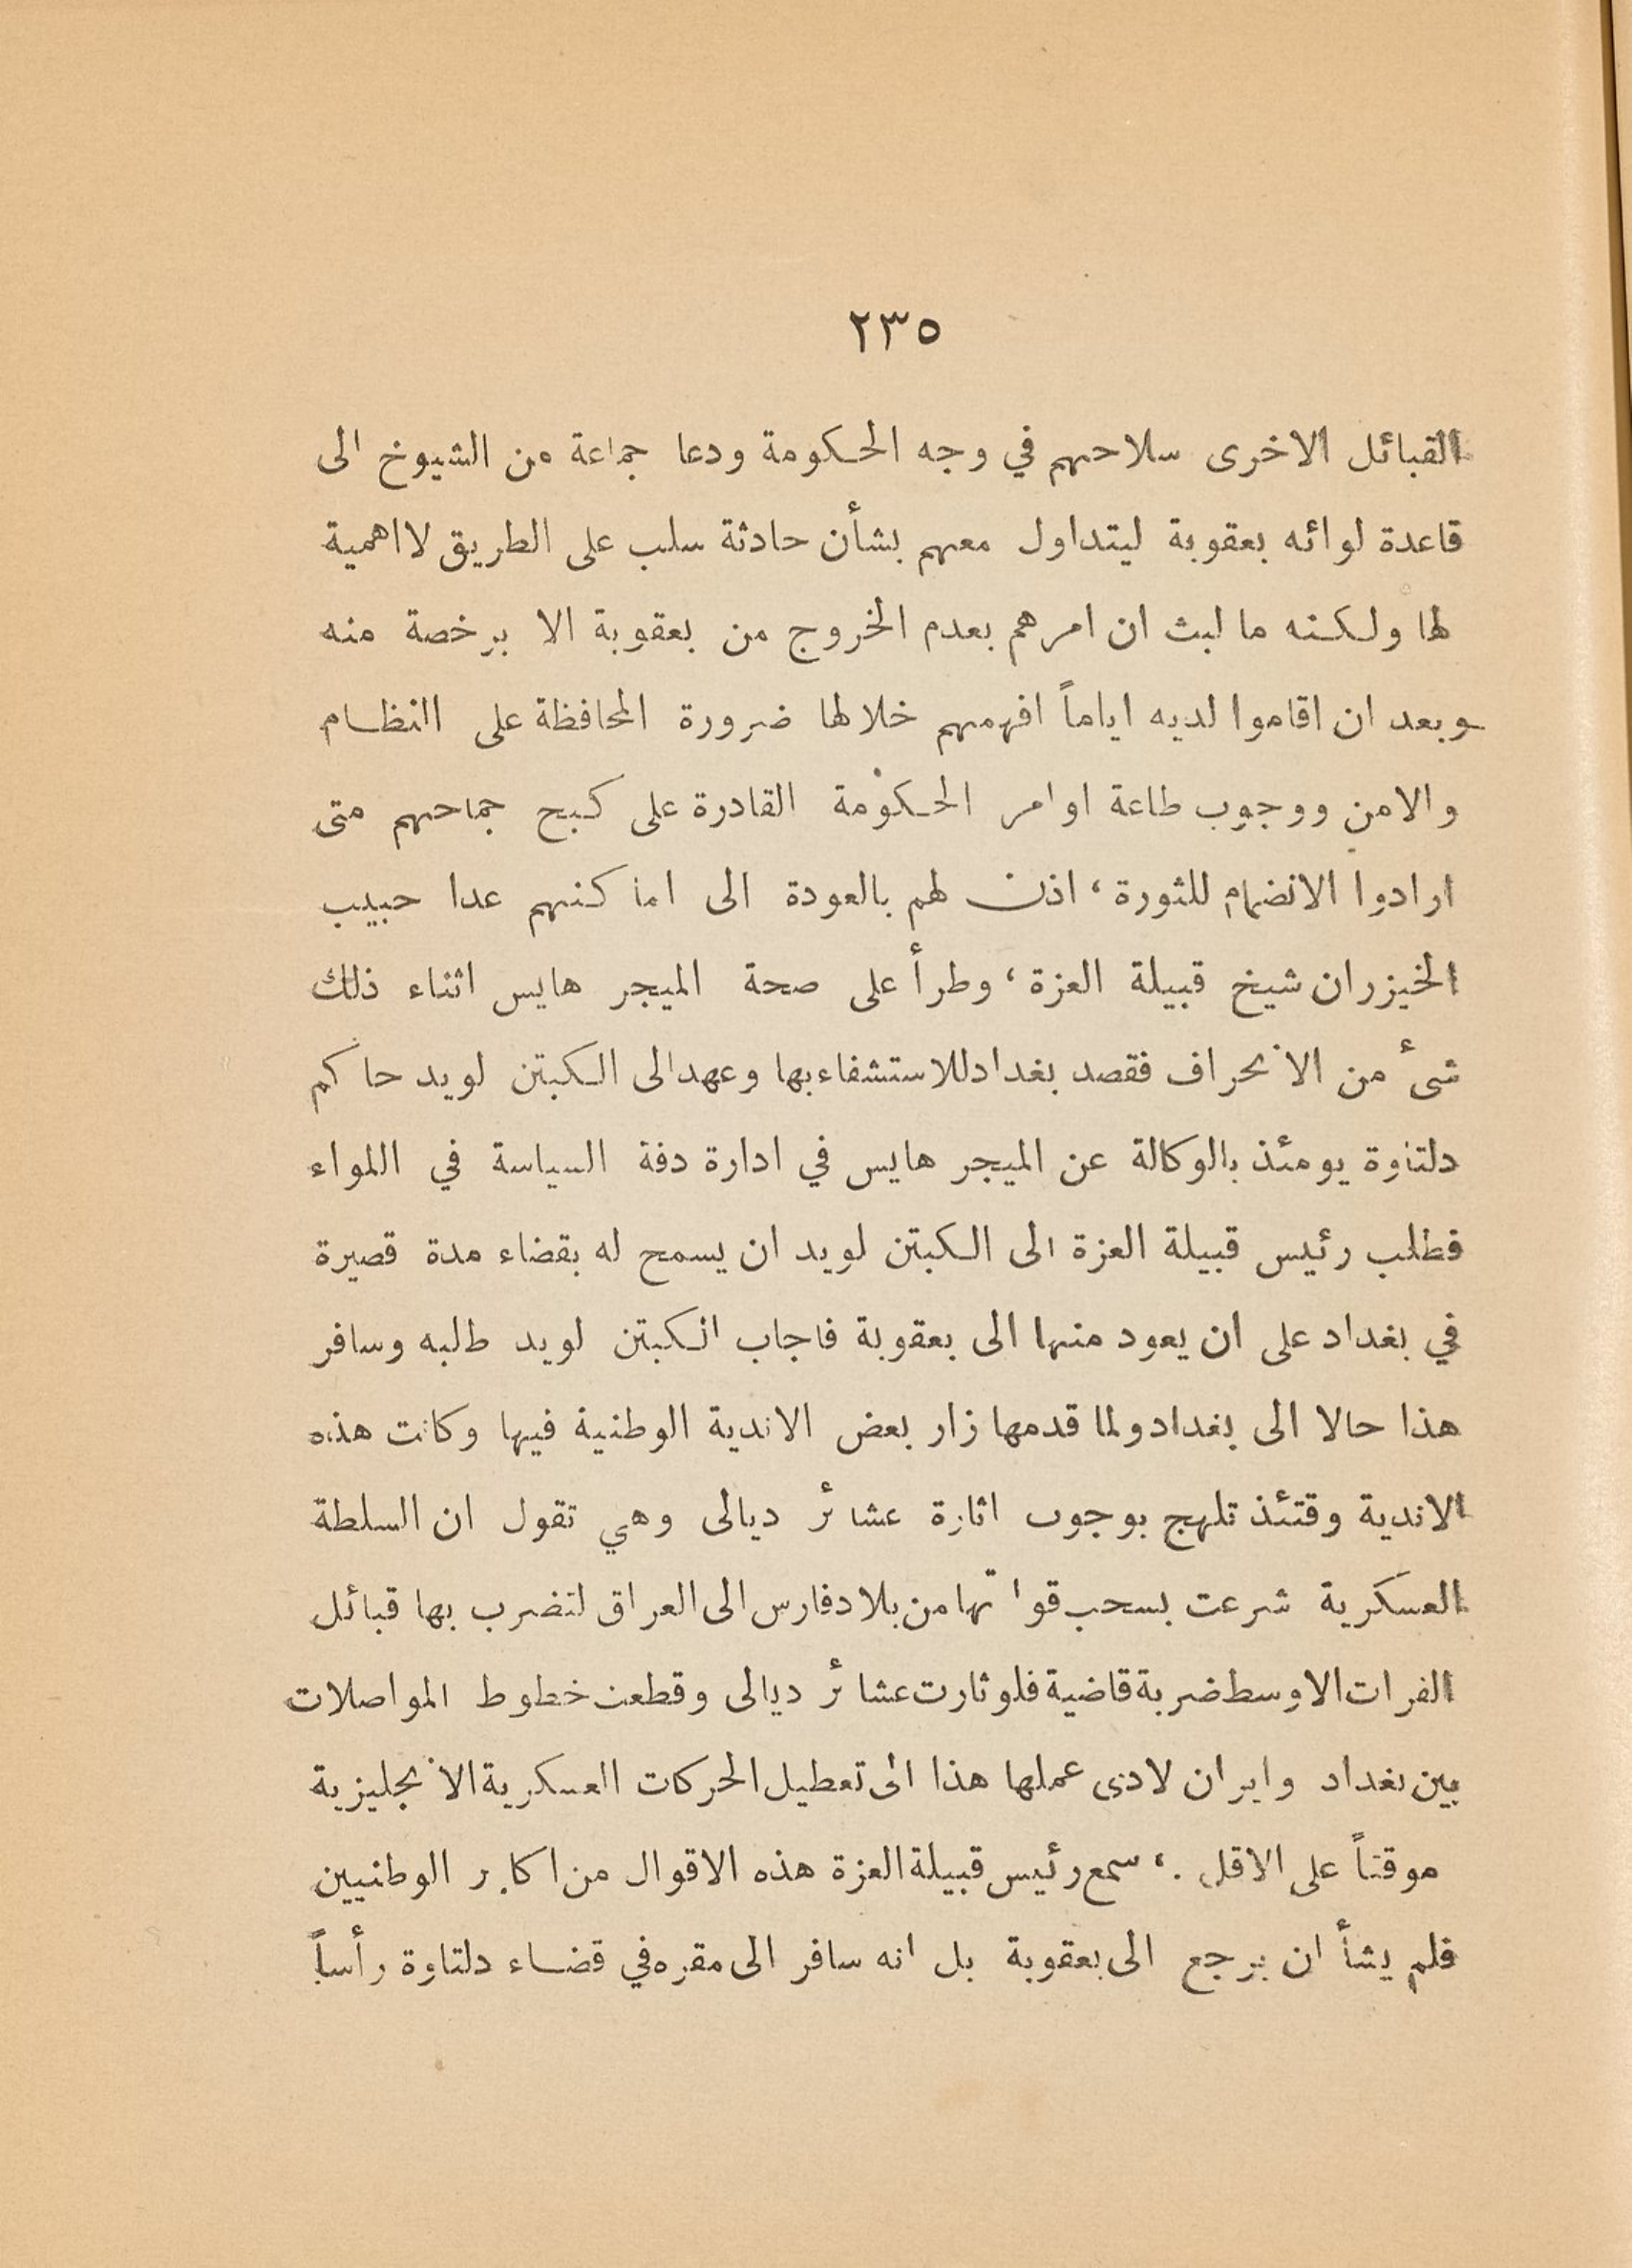 ٢٣٥
القبائل الاخرى سلاحهم في وجه الحكومة ودعا جماعة من الشيوخ الى
قاعدة لوائه بعقوبة ليتداول معهم بشأن حادثة سلب على الطريق لا اهمية
لها ولكنه ما لبث ان امرهم بعدم الخروج من بعقوبة الا برخصة منه
وبعد ان اقاموا لديه اياماً افهمهم خلالها ضرورة المحافظة على النظام
والامن ووجوب طاعة اوامر الحكومة القادرة على كبح جماحهم متى
ارادوا الانضمام للثورة، اذن لهم بالعودة الى اماكنهم عدا حبيب
الخيزران شيخ قبيلة العزة، وطرأ على صحة الميجر هايس اثناء ذلك
شئ من الانحراف فقصد بغداد للاستشفاء بها وعهد الى الكبتن لويد حاكم
دلتاوة يومئذ بالوكالة عن الميجر هايس في ادارة دفة السياسة في اللواء
فطلب رئيس قبيلة العزة الى الكبتن لويد ان يسمح له بقضاء مدة قصيرة
في بغداد على ان يعود منها الى بعقوبة فاجاب الكبتن لويد طلبه وسافر
هذا حالا الى بغداد ولما قدمها زار بعض الاندية الوطنية فيها وكانت هذه
الاندية وقتئذ تلهج بوجوب اثارة عشائر ديالى وهي تقول ان السلطة
العسكرية شرعت بسحب قواتها من بلاد فارس الى العراق لتضرب بها قبائل
الفرات الاوسط ضربة قاضية فلو ثارت عشائر ديالى وقطعت خطوط المواصلات
بين بغداد وايران لادى عملها هذا الى تعطيل الحركات العسكرية الانجليزية
موقتاً على الاقل .، سمع رئيس قبيلة العزة هذه الاقوال من اكابر الوطنيين
فلم يشأ ان يرجع الى بعقوبة بل انه سافر الى مقره في قضاء دلتاوة رأساً